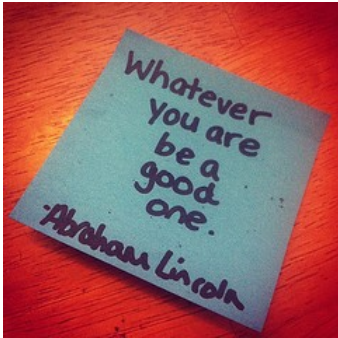 Whatever
you are
be a
good
one.
-Abraham Lincoln